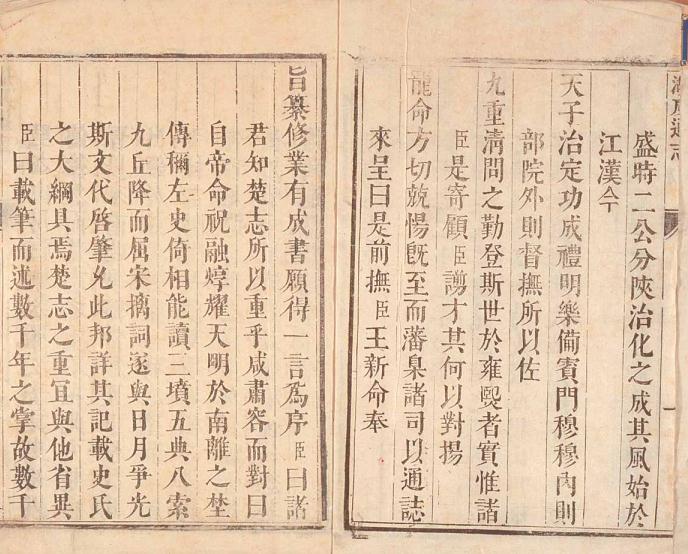 盛時二公分陝治化之成其風始於
江漢今
天子治定功成禮明樂備賓門穆穆內則
部院外則督撫所以佐
九重清問之勤登斯世於雍熙者實惟諸
臣是寄顧臣謭才其何以對揚
龍命方切兢惕旣至而藩臬諸司以通誌
來呈曰是前撫臣王新命奉
旨纂修業有成書願得一言爲序臣曰諸
君知楚志所以重乎咸肅容而對曰
自帝命祝融焞耀天明於南離之埜
傳稱左史倚相能讀三墳五典八索
九丘降而屈宋摛詞遂與日月爭光
斯文代啓肇允此邦詳其記載史氏
之大綱具焉楚志之重宜與他省異
臣曰載筆而述數千年之掌故數千
通志
一